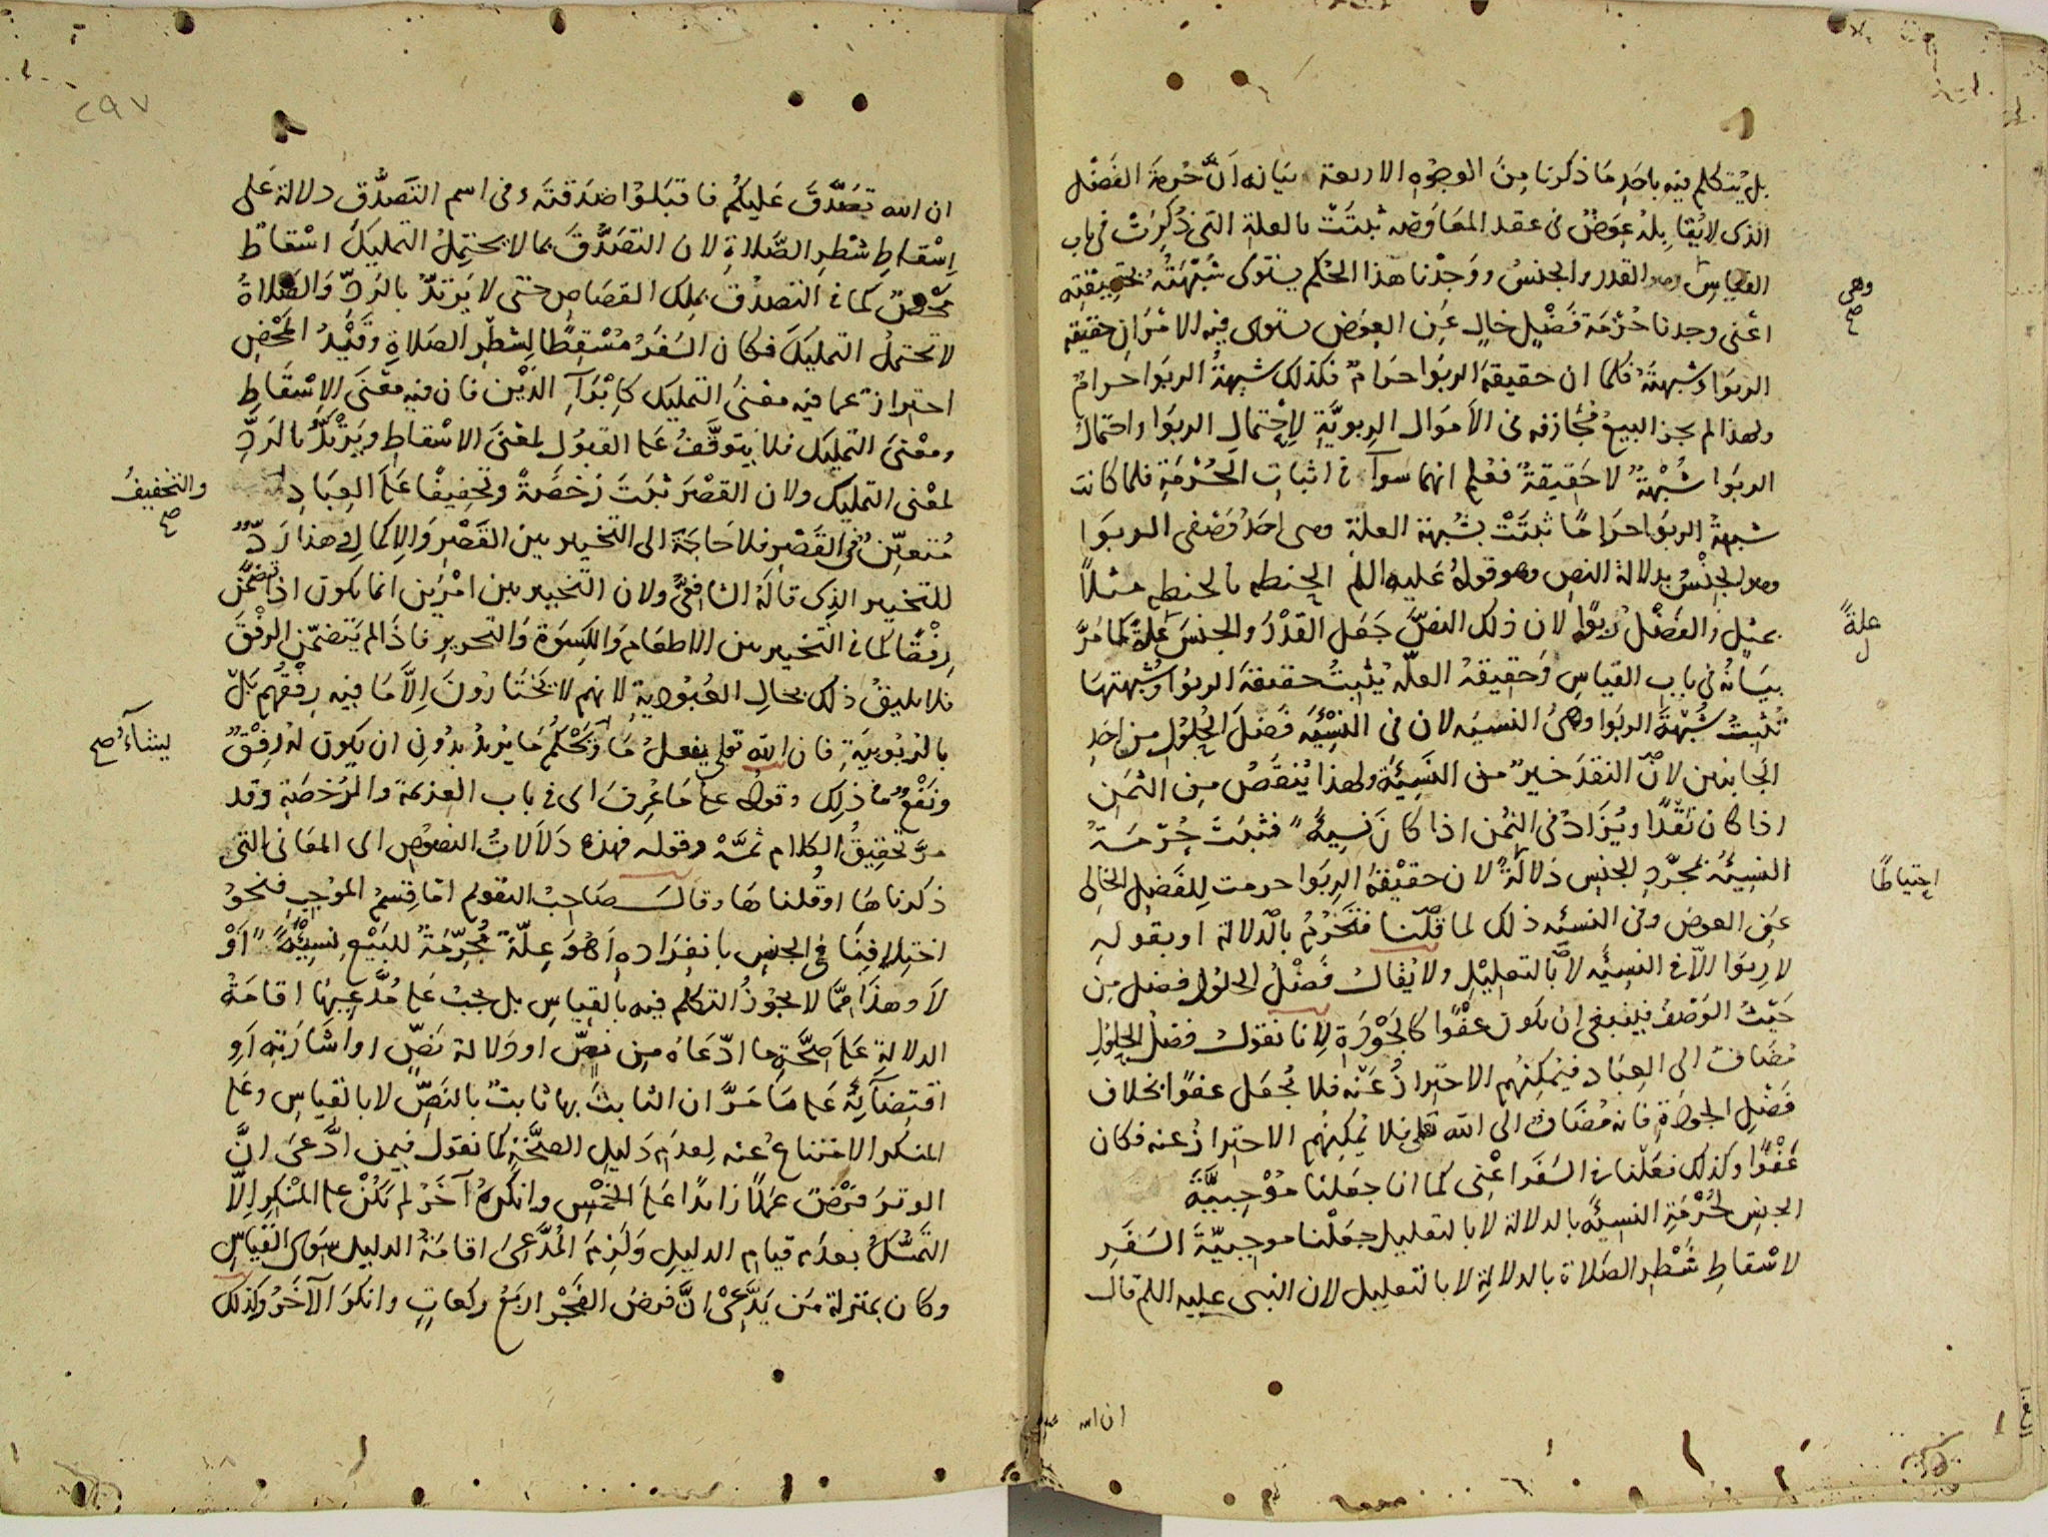 بل يتكلم فيه باحد ما ذكرنا من الوجوه الاربعة بيانه ان حرمة الفضل
الذى لا يقابله عوض فى عقد المعاوضه ثبتت بالعلة التى ذكرت فى باب
القياس وهو القدر والجنس ووجدنا هذا الحكم يستوى شبهته بحقيقته
وهى صح
اعنى وجدنا حرمة فضل خال عن العوض يستوى فيه الامران حقيقه
الربوا وشبهته فكما ان حقيقة الربوا حرام فكذلك شبهة الربوا حرام
ولهذا لم يجز البيع مجازفه فى الاموال الربوية لاحتمال الربوا واحتمال
الربوا شبهة لا حقيقة فعلم انهما سوآء فى اثبات الحرمة فلما كانت
شبهة الربوا حراما ثبتت بشبهة العلة وهى احد وصفى الربوا
وهو الجنس بدلالة النص وهو قوله عليه اللم الحنطه بالحنطه مثلا
بمثل والفضل ربوا لان ذلك النص جعل القدر والجنس علة كما مر
علة
بيانه فى باب القياس وحقيقة العلة يثبت حقيقة الربوا وشبهتها
تثبت شبهة الربوا وهى النسيه لان فى النسئه فضل الحلول من احد
الجانبين لان النقد خير من النسيئة ولهذا ينقص من الثمن
اذا كان نقدا ويزاد فى الثمن اذا كان نسية فثبت حرمة
النسيئة بمجرد الجنس دلالة لان حقيقة الربوا حرمت للفضل الخالى
احتياطا
عن العوض وفى النسئه ذلك لما قلنا فتحرم بالدلالة او بقوله
لا ربوا الا فى النسيئه لا بالتعليل ولا يقال فضل الحلول فضل من
حيث الوصف فينبغى ان يكون عفوا كالجودة لانا نقول فضل الحلول
مضاف الى العباد فيمكنهم الاحتراز عنه فلا يجعل عفوا بخلاف
فضل الجودة فانه مضاف الى الله تعلى فلا يمكنهم الاحتراز عنه فكان
عفوا وكذلك فعلنا فى السفر اعنى كما انا جعلنا موجبية
الجنس لحرمة النسيئه بالدلالة لا بالتعليل جعلنا موجبية السفر
لاسقاط شطر الصلاة بالدلالة لا بالتعليل لان النبى عليه اللم قال
ان الله
٢٩٧
ان الله تصدق عليكم فاقبلوا صدقته وفى اسم التصدق دلالة على
اسقاط شطر الصلاة لان التصدق بما لا يحتمل التمليك اسقاط
محض كما فى التصدق بملك القصاص حتى لا يرتد بالرد والصلاة
لا تحتمل التمليك فكان السفر مسقطا لشطر الصلاة وقيد المحض
احتراز عما فيه معنى التمليك كابرآء الدين فان فيه معنى الاسقاط
ومعنى التمليك فلا يتوقف على القبول لمعنى الاسقاط ويرتد بالرد
لمعنى التمليك ولان القصر ثبت رخصة وتخفيفا على العباد
والتخفيف صح
متعين فى القصر فلا حاجة الى التخيير بين القصر والاكمال وهذا رد
للتخيير الذى قاله الشافعى ولان التخيير بين امرين انما يكون اذا تضمن
رفقا كما فى التخيير بين الاطعام والكسوة والتحرير فاذا لم يتضمن الرفق
فلا يليق ذلك بحال العبودية لانهم لا يختارون الا ما فيه رفقهم بل
بالربوبية فان الله تعلى يفعل ما ويحكم ما يريد بدون ان يكون له رفق
يشآء صح
ونفع فى ذلك وقوله على ما عرف اى فى باب العزيمة والرخصة وقد
مر تحقيق الكلام ثمه وقوله فهذه دلالات النصوص اى المعانى التى
ذكرناها او قلناها وقال صاحب التقويم اما قسم الموجب فنحو
اختلافنا فى الجنس بانفراده اهو علة محرمة للبيع نسيئة او
لا وهذا مما لا يجوز التكلم فيه بالقياس بل يجب على مدعيها اقامة
الدلالة على صحة ما ادعاه من نص او دلالة نص او اشارته او
اقتضآئه على ما مر ان الثابت بها ثابت بالنص لا بالقياس وعلى
المنكر الامتناع عنه لعدم دليل الصحة كما نقول فيمن ادعى ان
الوتر فرض عملا زايدا على الخمس وانكره آخر لم يكن على المنكر الا
التمسك بعدم قيام الدليل ولزم المدعى اقامة الدليل سوى القياس
وكان بمنزلة من يدعى ان فرض الفجر اربع ركعات وانكر الآخر وكذلك